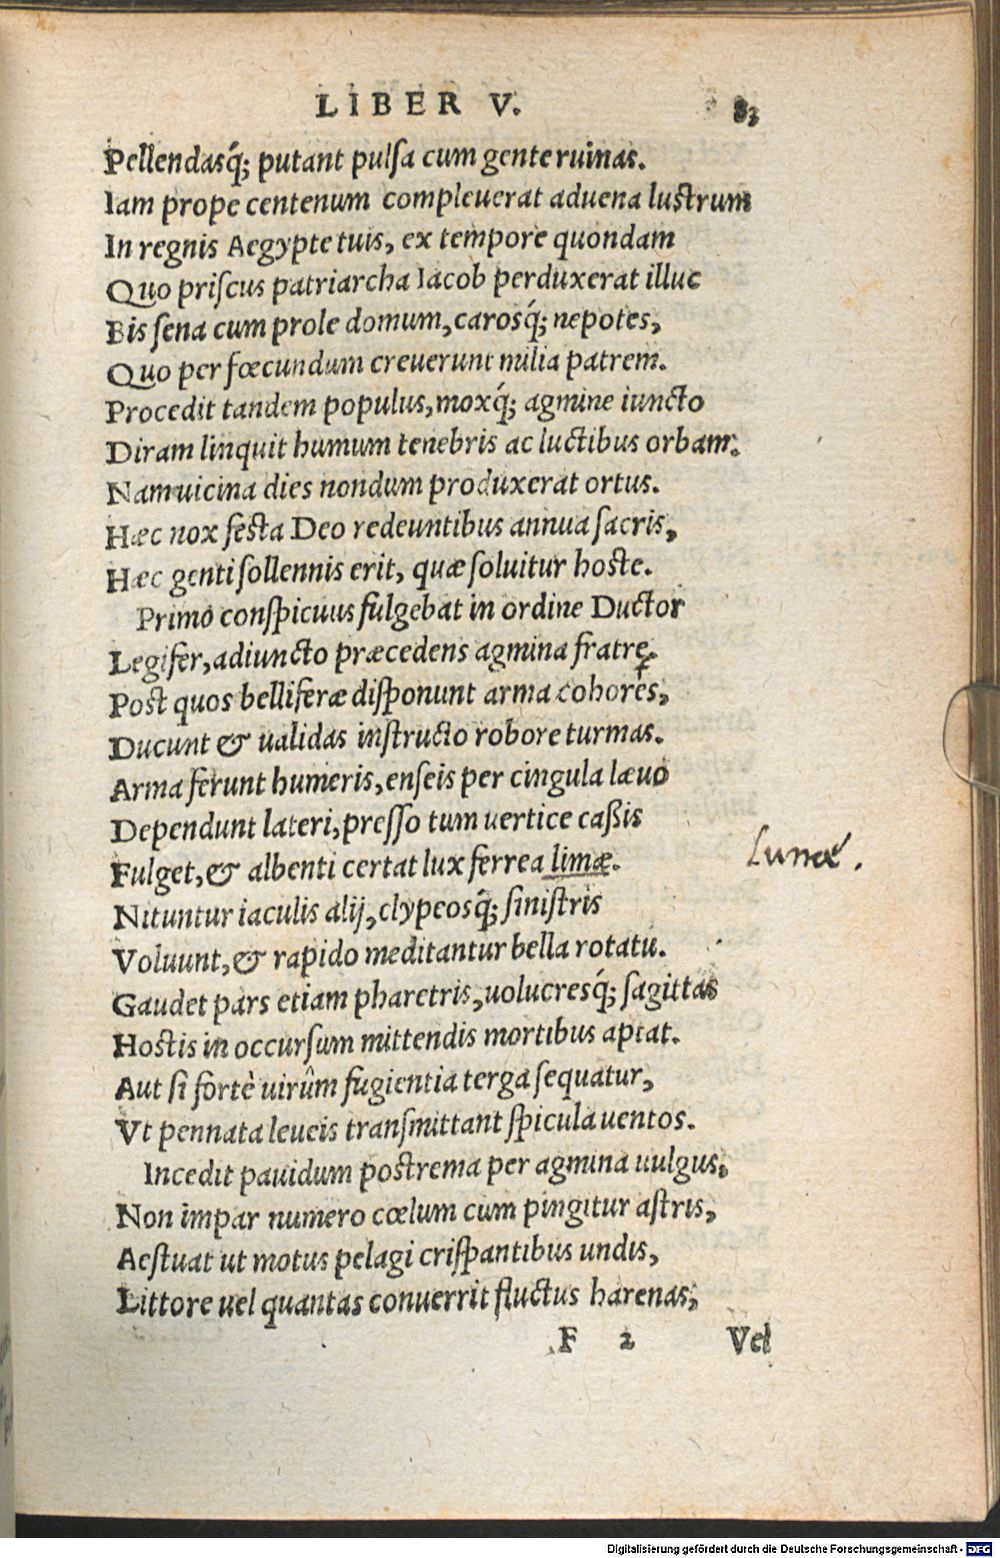 LIBER V. 83
Pellendasq́; putant pulsa cum gente ruinas.
Iam prope centenum compleuerat aduena lustrum
In regnis Aegypte tuis, ex tempore quondam
Quo priscus patriarcha Iacob perduxerat illuc
Bis sena cum prole domum, carosq́; nepotes,
Quo per fœcundum creuerunt milia patrem.
Procedit tandem populus, moxq́; agmine iuncto
Diram linquit humum tenebris ac luctibus orbam.
Nam uicina dies nondum produxerat ortus.
Hæc nox festa Deo redeuntibus annua sacris,
Hæc genti sollennis erit, quæ soluitur hoste.
Primò conspicuus fulgebat in ordine Ductor
Legifer, adiuncto præcedens agmina fratre.
Post quos belliferæ disponunt arma cohores,
Ducunt & ualidas instructo robore turmas.
Arma ferunt humeris, enseis per cingula læuo
Dependunt lateri, presso tum uertice caßis
Fulget, & albenti certat lux ferrea limæ. Lunæ.
Nituntur iaculis alij, clypeosq́; sinistris
Voluunt, & rapido meditantur bella rotatu.
Gaudet pars etiam pharetris, uolucresq́; sagittas
Hostis in occursum mittendis mortibus aptat.
Aut si fortè uirûm fugientia terga sequatur,
Vt pennata leueis transmittant spicula uentos.
Incedit pauidum postrema per agmina uulgus,
Non impar numero cœlum cum pingitur astris,
Aestuat ut motus pelagi crispantibus undis,
Littore uel quantas conuerrit fluctus harenas,
F 2 Vel
Digitalisierung gefördert durch die Deutsche Forschungsgemeinschaft - DFG